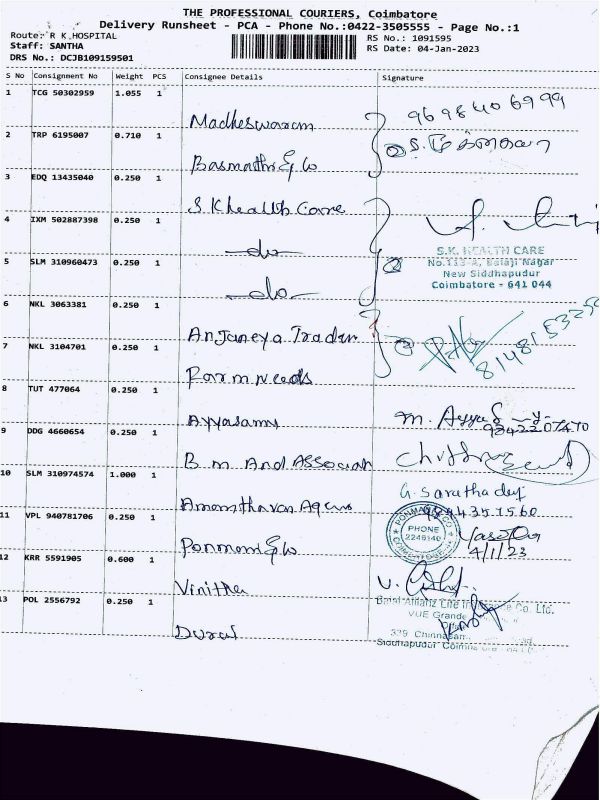 THE PROFESSIONAL COURIERS, Coimbatore
Delivery Runsheet - PCA - Phone No.:0422-3505555 - Page No.:1
Route: R K HOSPITAL
Staff: SANTHA
DRS No.: DCJB109159501
RS No.: 1091595
RS Date: 04-Jan-2023
S No Consignment No Weight PCS Consignee Details Signature
1 TCG 50302959 1.055 1 Madheswaram
9698406999
2 TRP 6195007 0.710 1 Basmathi & Co
3 EDQ 13435040 0.250 1 S.K health Care
4 IXM 502887398 0.250 1 -do-
S.K. HEALTH CARE
No.113-A, Balaji Nagar
New Siddhapudur
Coimbatore - 641 044
5 SLM 310960473 0.250 1 -do-
6 NKL 3063381 0.250 1 Anjaneya Traders
7 NKL 3104701 0.250 1 Farm Needs
8 TUT 477064 0.250 1 Ayyasamy
9 DDG 4660654 0.250 1 B.m And Associat
10 SLM 310974574 1.000 1
G. Sarathadey
PHONE
2246140
4/1/23
11 VPL 940781706 0.250 1
12 KRR 5591905 0.600 1 Vinitha
Bajaj Allianz Life Insurance Co. Ltd.
VUE Grande
339 Chinnasam
Siddhapudur
13 POL 2556792 0.250 1 Durai